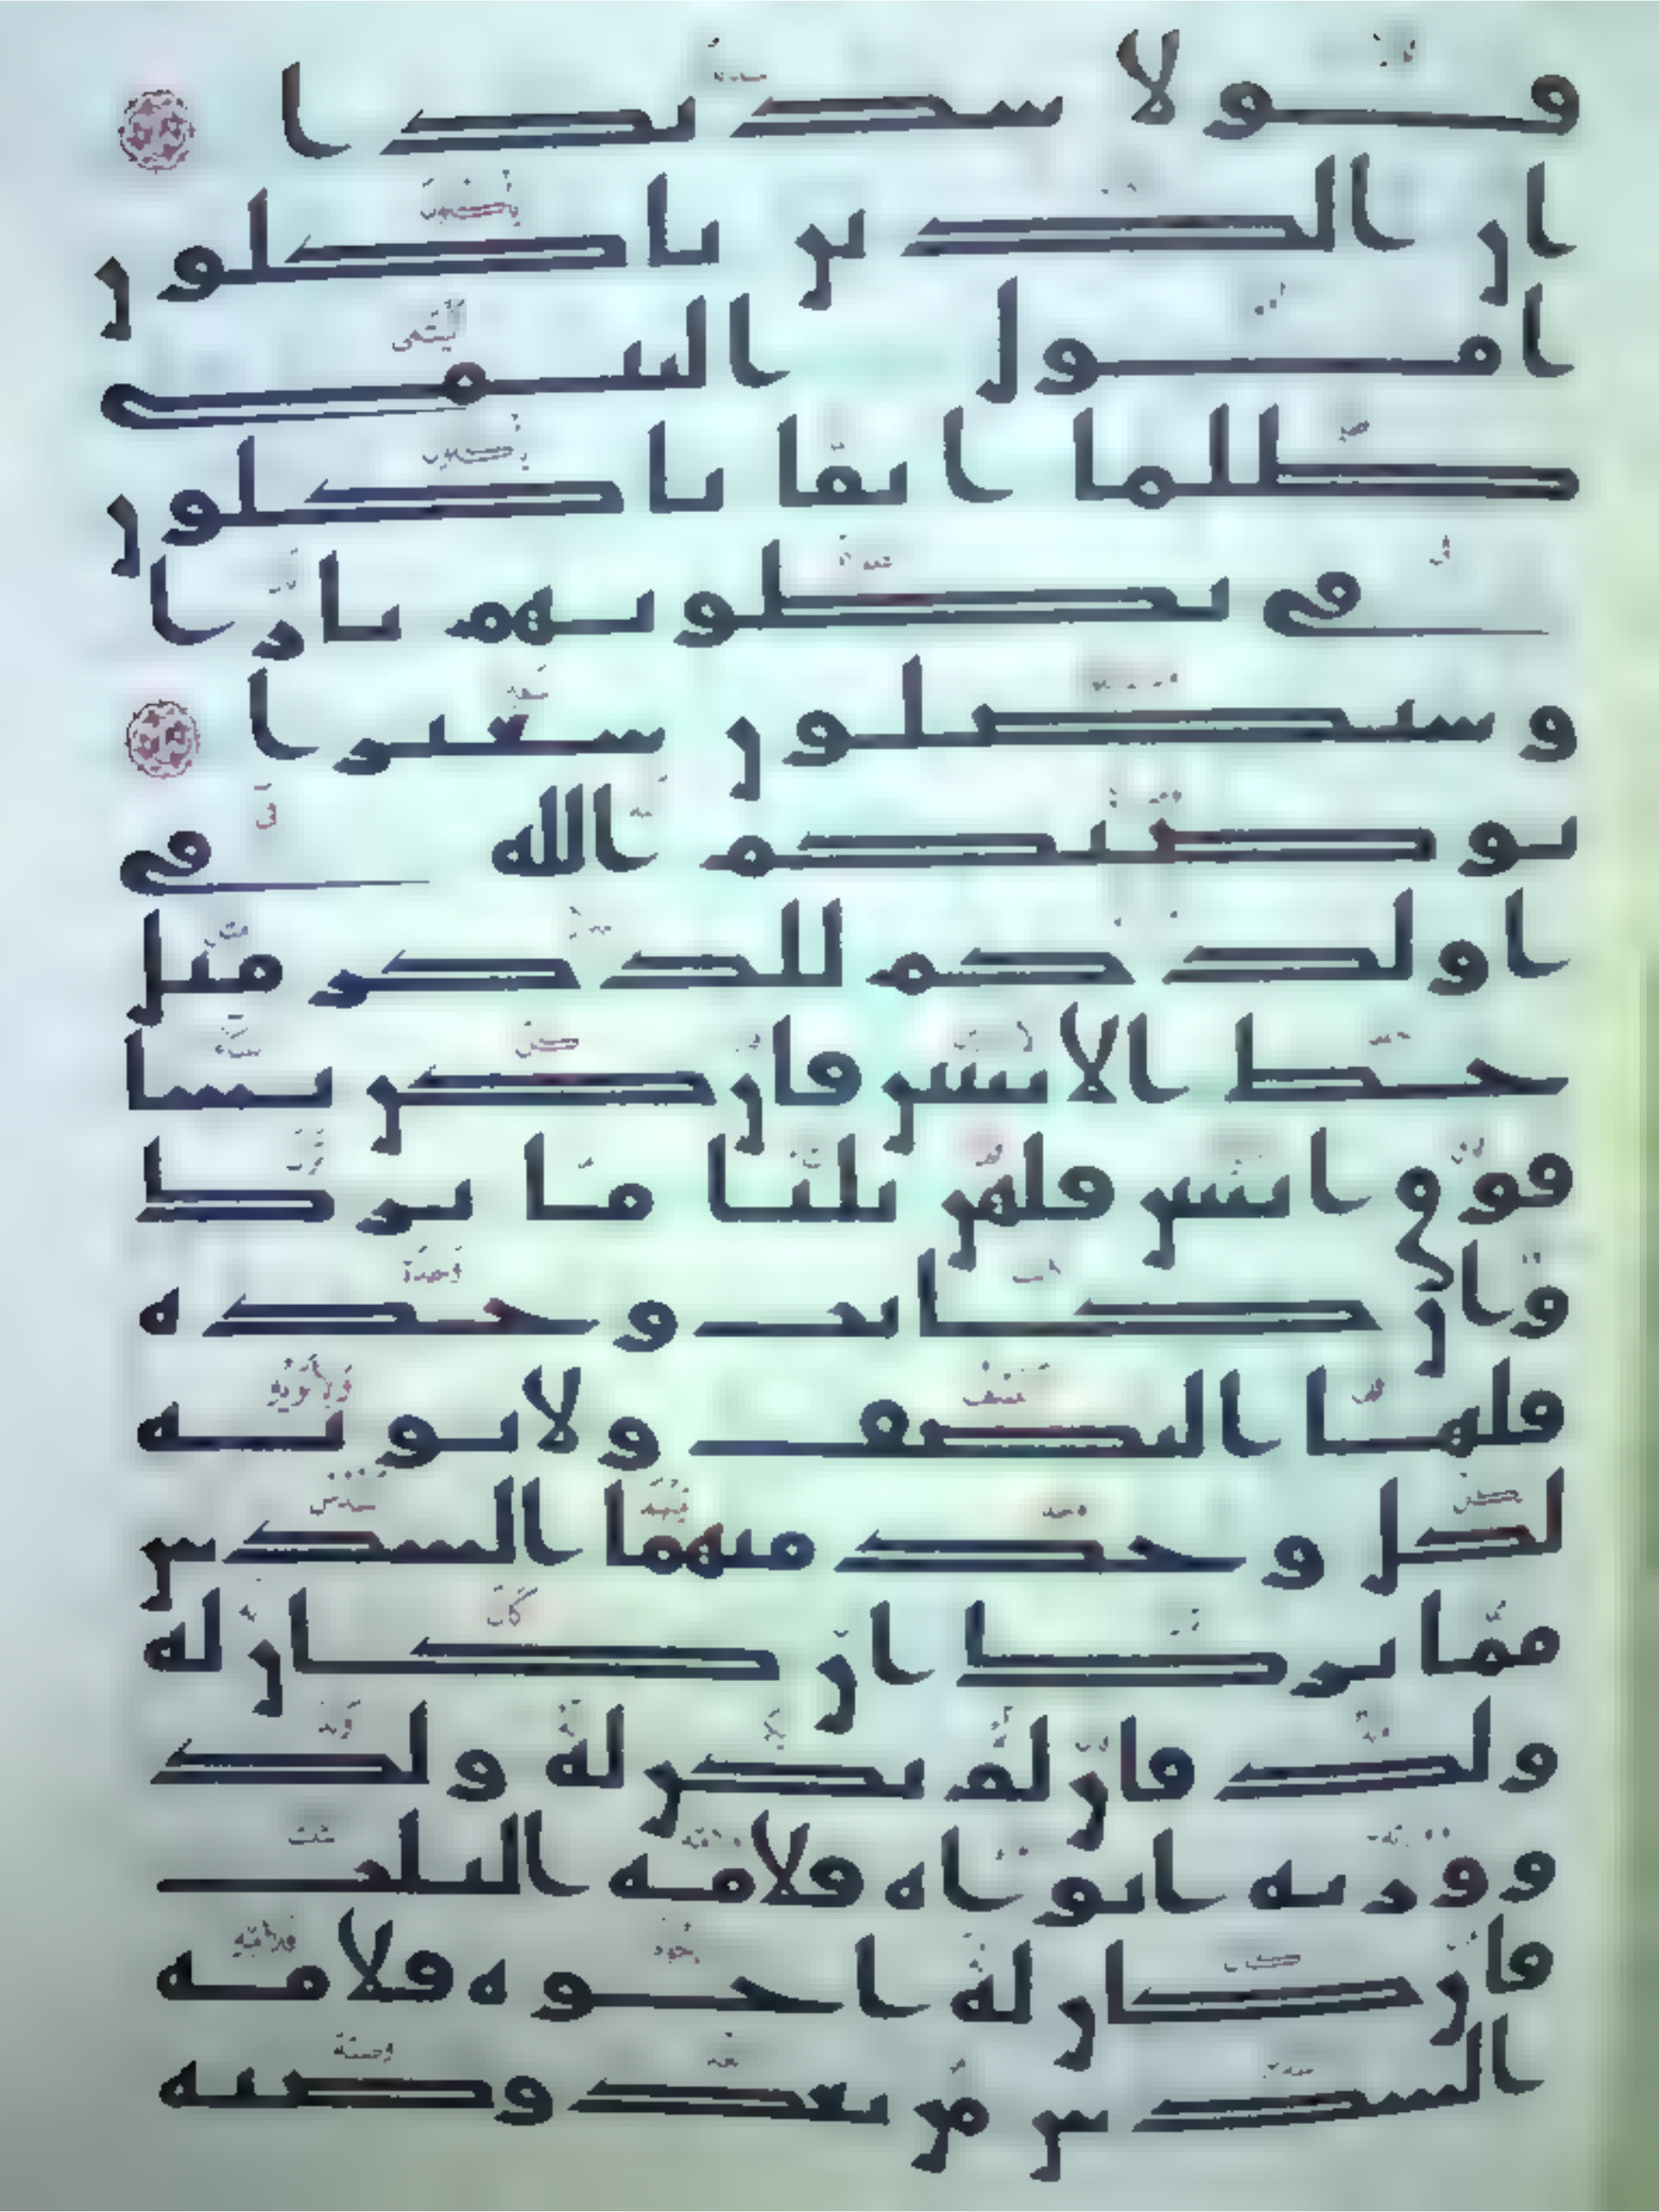 قولا سديدا
ان الذين ياكلون
امول اليتمى
ظلما انما ياكلون
في بطونهم نارا
وسيصلون سعيرا
يوصيكم الله في
اولدكم للذكر مثل
حظ الانثيين فان كن نسا
فوق اثنتين فلهن ثلثا ما ترك
وان كانت وحدة
فلها النصف ولابويه
لكل وحد منهما السدس
مما ترك ان كان له
ولد فان لم يكن له ولد
وورثه ابواه فلامه الثلث
فان كان له اخوة فلامه
السدس من بعد وصية